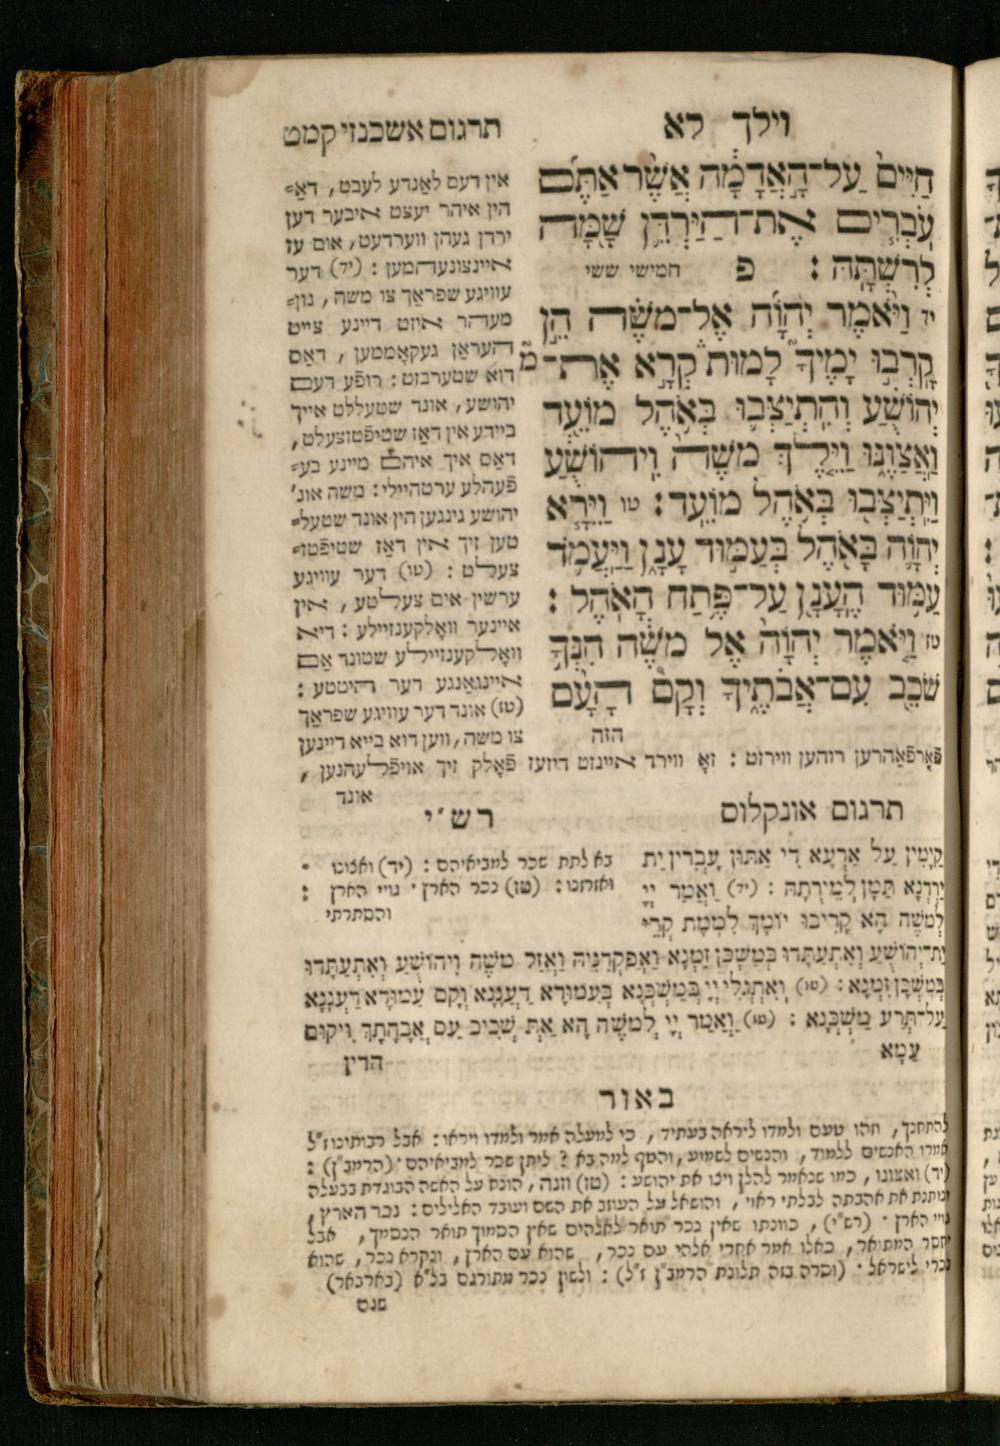 וילך לא
תרגום אשכנזי קמט
חַיִּים֙ עַל־הָ֣אֲדָמָ֔ה אֲשֶׁ֨ר אַתֶּ֜ם
עֹבְרִ֧ים אֶת־הַיַּרְדֵּ֛ן שָׁ֖מָּה
לְרִשְׁתָּֽהּ : פ חמישי ששי
יד וַיֹּ֨אמֶר יְהֹוָ֜ה אֶל־מֹשֶׁ֗ה הֵ֣ן
קָרְב֣וּ יָמֶ֘יךָ֮ לָמוּת֒ קְרָ֣א אֶת־
יְהוֹשֻׁ֗עַ וְהִֽתְיַצְּב֛וּ בְּאֹ֥הֶל מוֹעֵ֖ד
וַאֲצַוֶּ֑נּוּ וַיֵּ֤לֶךְ מֹשֶׁה֙ וִֽיהוֹשֻׁ֔עַ
וַיִּֽתְיַצְּב֖וּ בְּאֹ֥הֶל מוֹעֵֽד : טו וַיֵּרָ֧א
יְהֹוָ֛ה בָּאֹ֖הֶל בְּעַמּ֣וּד עָנָ֑ן וַיַּעֲמֹ֞ד
עַמּ֧וּד הֶעָנָ֛ן עַל־פֶּ֥תַח הָאֹֽהֶל :
טז וַיֹּ֤אמֶר יְהֹוָה֙ אֶל מֹשֶׁ֔ה הִנְּךָ֥
שֹׁכֵ֖ב עִם־אֲבֹתֶ֑יךָ וְקָם֩ הָעָ֨ם
הזה
אין דעם לאַנדע לעבט, דאַ=
הין איהר יעצט איבער דען
ירדן געהן ווערדעט, אום עז
איינצונעהמען : (יד) דער
עוויגע שפראַך צו משה, נון=
מעהר איזט דיינע צייט
העראַן געקאָממען, דאַס
דוא שטערבזט : רופֿע דעם
יהושע, אונד שטעללט אייך
ביידע אין דאַז שטיפֿטזצעלט,
דאַס איך איהם מיינע בע=
פֿעהלע ערטהיילי : משה אונ'
יהושע גינגען הין אונד שטעל=
טען זיך אין דאַז שטיפֿטז=
צעלט : (טו) דער עוויגע
ערשין אים צעלטע, אין
איינער וואָלקענזיילע : דיא
וואָלקענזיילע שטונד אַם
איינגאַנגע דער היטטע :
(טז) אונד דער עוויגע שפראַך
צו משה, ווען דוא בייא דיינען
פֿאָרפֿאַהרען רוהען ווירזט : זאָ ווירד איינזט דיזעז פֿאָלק זיך אויפֿלעהנען,
אונד
תרגום אונקלוס
קַיָּמִין עַל אַרְעָא דִי אַתּוּן עָבְרִין יַת
יַרְדְנָא תַּמָּן לְמֵירְתַהּ : (יד) וַאֲמַר יְיָ
לְמשֶׁה הָא קָרִיבוּ יוֹמָךְ לִמְמַת קְרֵי
יַת־יְהוֹשֻׁעַ וְאִתְעַתָּדוּ בְּמַשְׁכַּן זִמְנָא וַאֲפַקְּדִנֵּיהּ וַאֲזַל משֶׁה וִיהוֹשֻׁעַ וְאִתְעַתָּדוּ
בְּמַשְׁכַּן זִמְנָא : (טו) וְאִתְגְּלִי יְיָ בְּמַשְׁכְּנָא בְּעַמּוּדָא דַעֲנָנָא וְקָם עַמּוּדָא דַעֲנָנָא
עַל־תְּרַע מַשְׁכְּנָא : (טז) וַאֲמַר יְיָ לְמשֶׁה הָא אַתְּ שְׁכִיב עִם אֲבָהָתָךְ וִיקוּם
עַמָּא
הדין
רש"י
בא לתת שכר למביאיהם : (יד) ואצונו ·
ואזרזנו : (טז) נכר הארץ · גויי הארץ :
והסתרתי
באור
להתחנך, וזהו טעם ולמדו ליראה בעתיד, כי למעלה אמר ולמדו ויראו : אבל רבותינו ז"ל
אמרו האנשים ללמוד, והנשים לשמוע, והטף למה בא ? ליתן שכר למביאיהם · (הרמב"ן) :
(יד) ואצונו, כמו שנאמר להלן ויצו את יהושע : (טז) וזנה, הונח על האשה הבוגדת בבעלה
ונותנת את אהבתה לבלתי ראוי, והושאל על העוזב את השם ועובד האלילים : נכר הארץ,
גויי הארץ · (רש"י), כוונתו שאין נכר תואר לאלהים שאין הסמוך תואר הנסמך, אבל
יחסר המתואר, כאלו אמר אחרי אלהי עם נכר, שהוא עם הארץ, ונקרא נכר, שהוא
נכרי לישראל · (וסרה בזה תלונת הרמב"ן ז"ל) : ולשון נכר מתורגם בל"א (באַרבאַר)
שגם